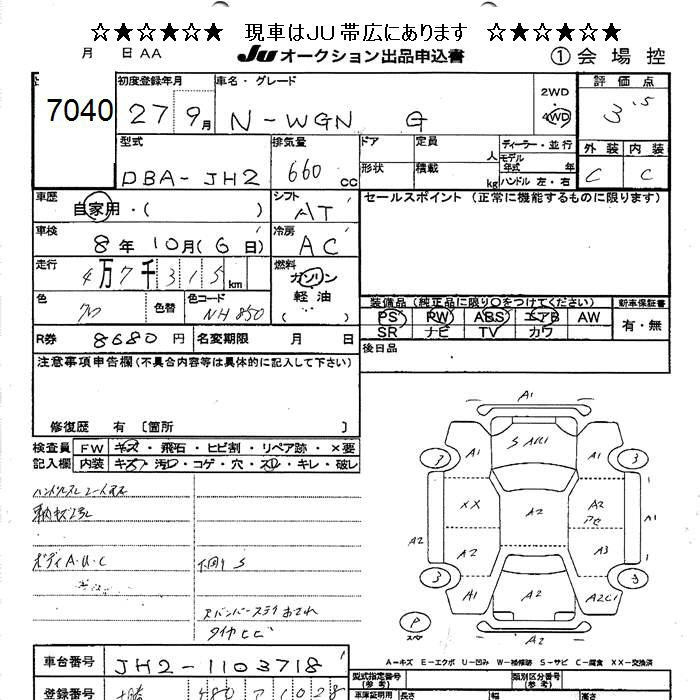 ☆★☆★☆★ 現車はJU帯広にあります ☆★☆★☆★
月 日 AA JU オークション出品申込書 ① 会場控
7040 初度登録年月 車名・グレード 評価点
27 9月 N-WGN G 2WD 4WD 3.5
型式 排気量 ドア 定員 人 ディーラー・並行 外装 内装
DBA-JH2 660 cc 形状 積載 kg モデル年式 年 ハンドル 左・右 C C
車歴 自家用・( ) シフト AT セールスポイント (正常に機能するものに限ります)
車検 8年 10月(6日) 冷房 AC
走行 4万7千315km 燃料 ガソリン 軽油 ( )
色 色替 色コード NH850
装備品(純正品に限り○をつけてください) 新車保証書
PS PW ABS エアB AW 有・無
SR ナビ TV カワ
R券 8680円 名変期限 月 日 後日品
注意事項申告欄(不具合内容等は具体的に記入して下さい)
修復歴 有 [箇所 ]
検査員 FW キズ・飛石・ヒビ割・リペア跡・×要
記入欄 内装 キズ・汚れ・コゲ・穴・スレ・キレ・破し
ボディ A・U・C 下回り S
タイヤヒビ
A1
S A1U1
A1 A1
3 3
XX A2 A2 PC A1
A2 A2 A3
3 3
A1 A2 A2C1
P スペア A2
A-キズ E-エクボ U-凹み W-補修跡 S-サビ C-腐食 XX-交換済
車台番号 JH2-1103718
型式指定番号(参考) 類別区分番号(参考)
登録番号 十勝 480 ア 1028 車庫証明用 長さ 幅 高さ